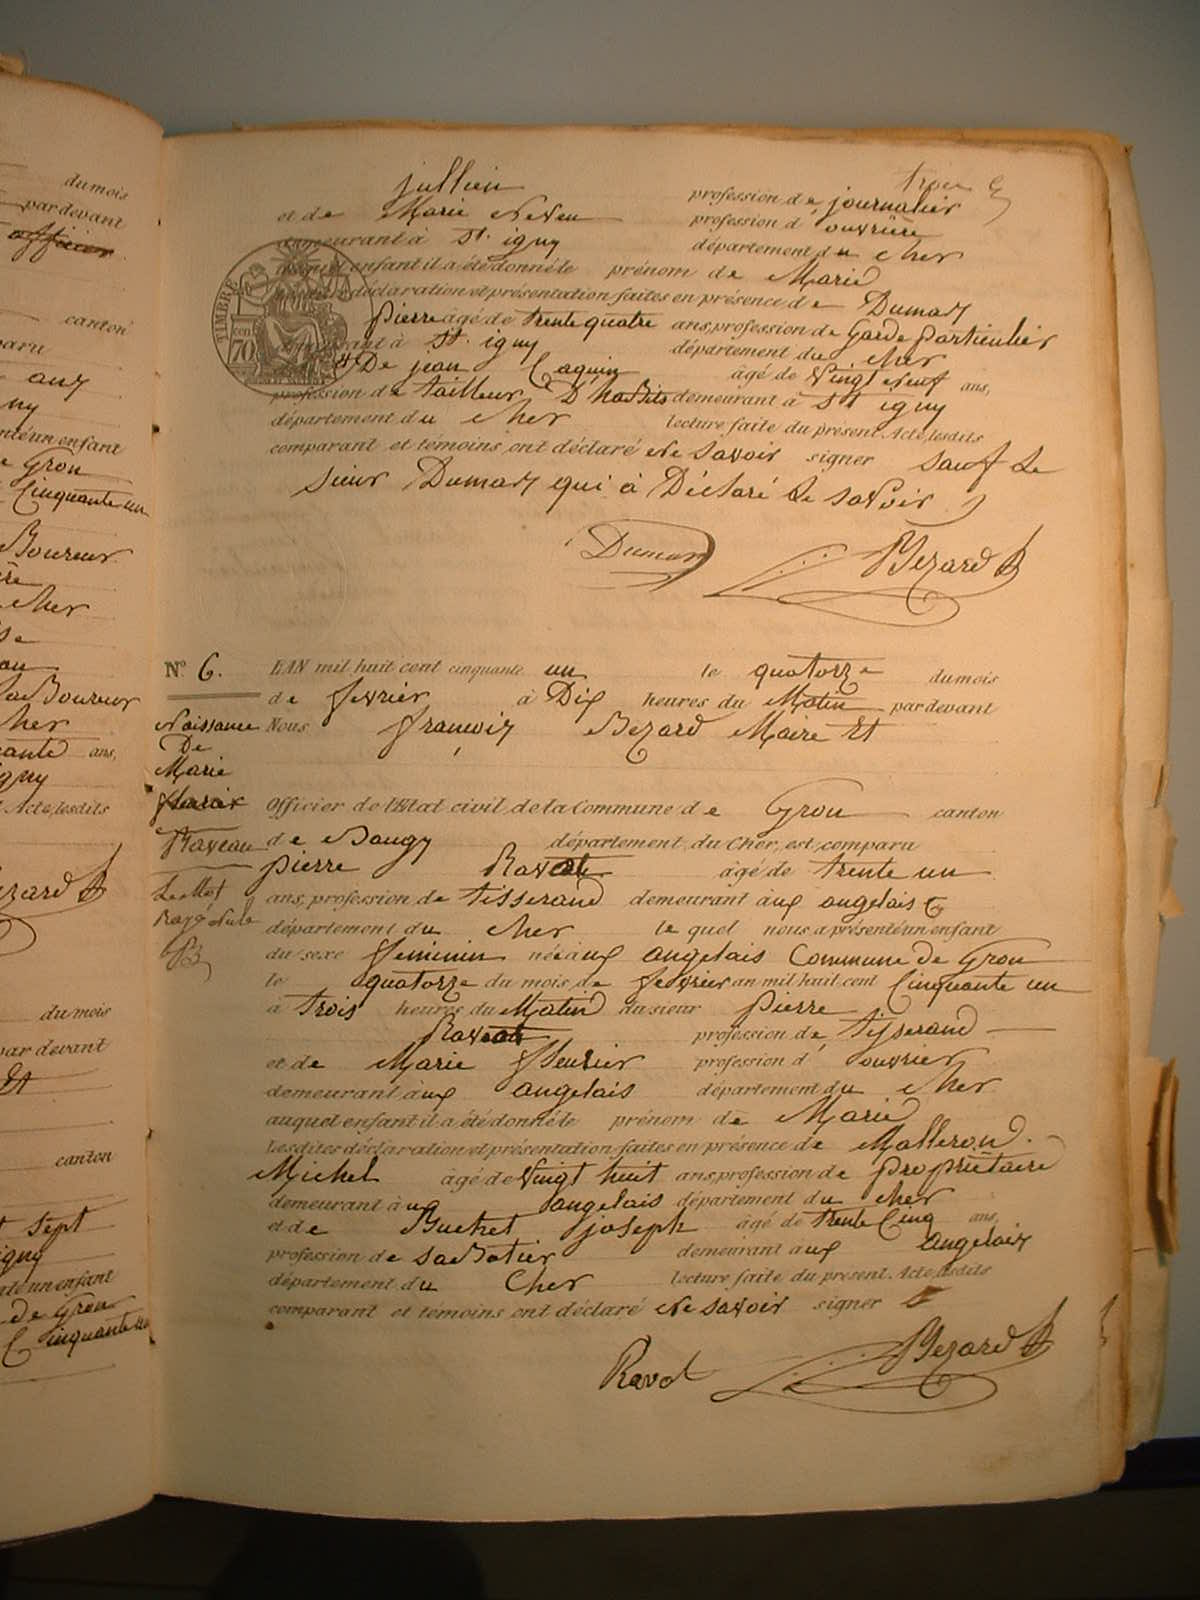 du mois
par devant
officier
canton
ny
un enfant
Gron
Cinquante un
Boureur
Cher
LaBoureur
Cher
ans,
Acte, lesdits
du mois
par devant
Et
canton
Sept
igny
un enfant
de Gron
Cinquante un
trois
jullien profession de journalier
et de Marie Neven profession d'ouvrière
demeurant à St. igny département du Cher
auquel enfant il a été donné le prénom de Marie
déclaration et présentation faites en présence de Dumay
pierre agé de trente quatre ans, profession de Garde particulier
demeurant à St. igny département du Cher
TIMBRE
70
Et De jean Caquin âgé de Vingt Neuf ans,
profession de tailleur D'haBits demeurant à St igny
département du Cher lecture faite du présent Acte, lesdits
comparant et témoins ont déclaré Ne savoir signer sauf Le
sieur Dumay qui à Déclaré Le saVoir
Dumay Bezard
N° 6. L'AN mil huit cent cinquante un le quatorze du mois
de fevrier à Dix heures du Matin par devant
Naissance Nous françois Bezard Maire Et
De
Marie
Officier de l'Etat civil de la Commune de Gron canton
Raveau de Baugy département du Cher, est comparu
pierre Ravot âgé de trente un
Le Mot ans, profession de tisserand demeurant aux angelais
Rayé Nule département du Cher le quel nous a présenté un enfant
B du sexe feminin né aux angelais Commune de Gron
le quatorze du mois de fevrier an mil huit cent Cinquante un
à trois heures du Matin du sieur pierre
Ravot profession de tisserand
et de Marie fleurier profession d'ouvrier
demeurant aux angelais département du Cher
auquel enfant il a été donné le prénom de Marie
Lesdites déclaration et présentation faites en présence de Malleron
Michel âgé de Vingt huit ans, profession de propriétaire
demeurant aux angelais département du Cher
et de Buchet joseph âgé de trente Cinq ans,
profession de saBotier demeurant aux angelais
département du Cher lecture faite du présent Acte, lesdits
comparant et témoins ont déclaré Ne savoir signer
Ravot Bezard